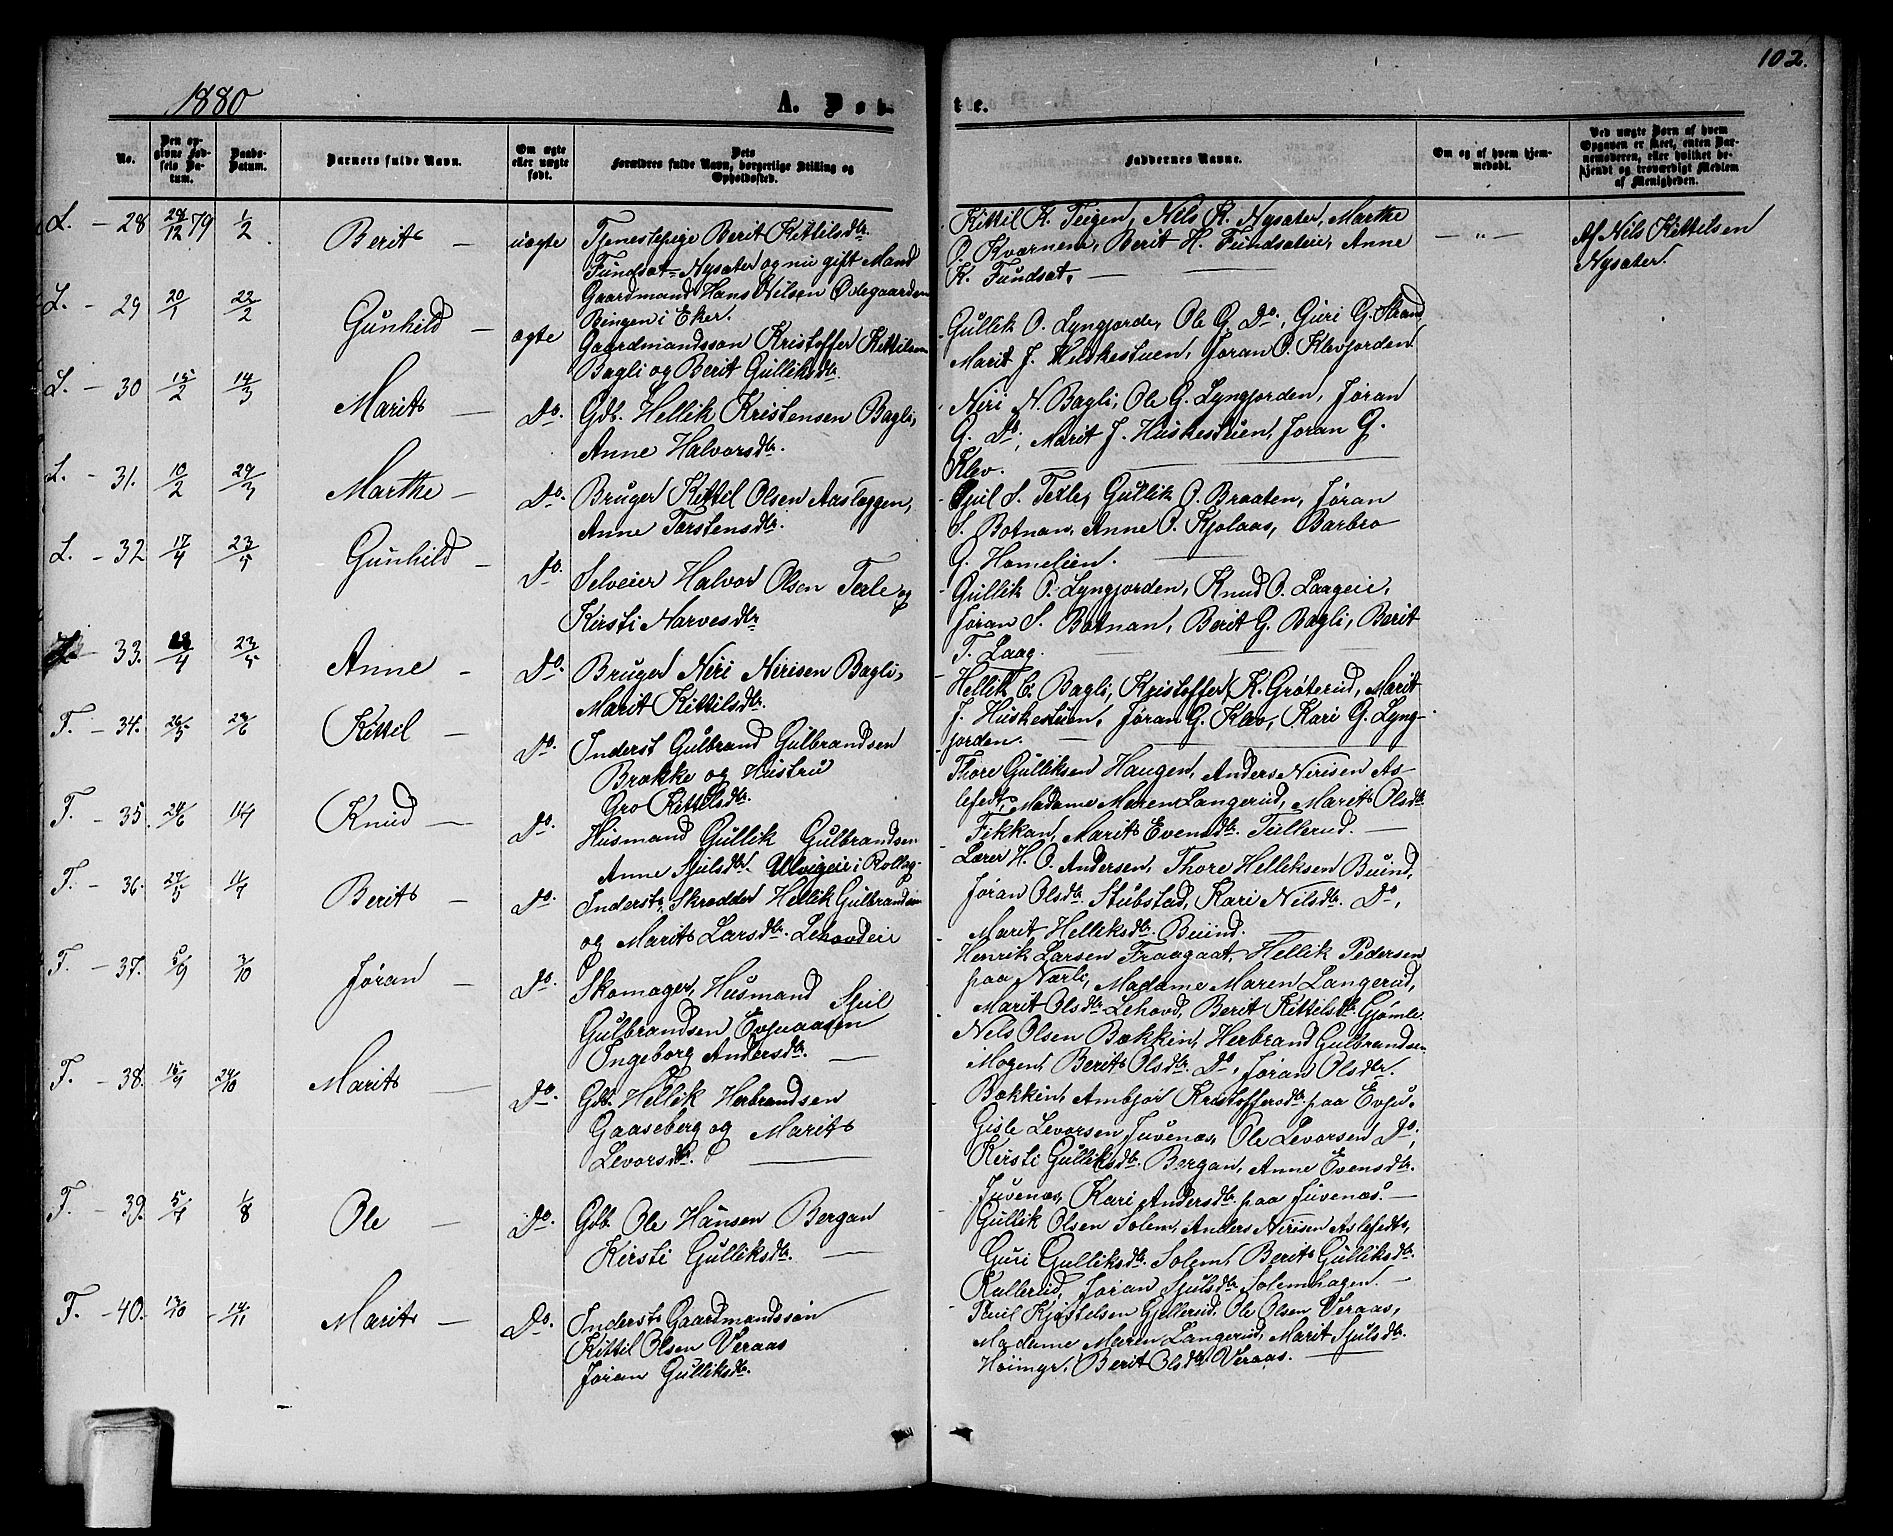 102.
1880
A. Døb-
te.
No.
Den op-
givne Fød-
sels Da-
tum.
Daabs-
Datum.
Barnets fulde Navn.
Om ægte
eller uægte
født.
Dets
Forældres fulde Navn, borgerlige Stilling og
Opholdssted.
Faddernes Navne.
Om og af hvem hjem-
medøbt.
Ved uægte Børn af hvem
Opgaven er skeet, enten Bar-
nemoderen, eller hvilket be-
kjendt og troværdigt Medlem
af Menigheden.
L. - 28 28/12 79 1/2 Berit - uægte
Tjenestepige Berit Kittilsdtr.
Fundsat-Nysæter og nu gift Mand
Gaardmand Hans Nilsen Øvegaarden
Bingen i Eker.
Kittil K. Teigen, Nils K. Nysæter, Marthe
O. Kværnen, Berit H. Fundsateie, Anne
K. Fundsat. -
- " -
Af Nils Kittilsen
Nysæter.
L. - 29 20/1 22/2 Gunhild - ægte
Gaardmandssøn Kristoffer Kittilsen
Bagli og Berit Gulliksdtr.
Gullik O. Lyngjorde, Ole G. Do, Guri G. Strand,
Marit J. Huskestuen, Jøran O. Klevjorden
L. - 30 15/2 14/3 Marit - Do.
Gdb. Hellik Kristensen Bagli,
Anne Halvorsdtr.
Niri N. Bagli, Ole G. Lyngjorden, Jøran
G. Do, Marit J. Huskestuen, Jøran G.
Klev.
L. - 31. 10/2 29/3 Marthe - Do.
Bruger Kittil Olsen Aasleggen,
Anne Torstensdtr.
Sjul S. Texle, Gullik O. Braaten, Jøran
S. Botnan, Anne O. Kjølaas, Barbro
G. Homelien.
L. - 32 17/4 23/5 Gunhild - Do.
Selveier Halvor Olsen Texle og
Kirsti Narvesdtr
Gullik O. Lyngjorden, Knud O. Laageie,
Jøran S. Botnan, Berit G. Bagli, Berit
T. Laag.
L. - 33. /4 23/5 Anne - Do.
Bruger Niri Nirisen Bagli,
Marit Kittilsdtr.
Hellik C. Bagli, Kristoffer K. Grøterud, Marit
J. Huskestuen, Jøran G. Klev, Kari G. Lyng-
jorden.
T. - 34. 26/5 29/6 Kittil - Do.
Inderst Gulbrand Gulbrandsen
Brække og Hustru
Gro Kittilsdtr.
Thore Gulliksen Haugen, Anders Nirisen As-
lefedt, Madame Maren Langerud, Marit Olsdtr.
Fikkan, Marit Evensdtr. Tullerud. -
T. - 35. 24/6 11/7 Knud - Do.
Husmand Gullik Gulbrandsen
Anne Sjulsdtr. Ulvigeie i Rollag
Lærer H. O. Andersen, Thore Helliksen Buind,
Jøran Olsdtr. Stubstad, Kari Nilsdtr. Do,
Marit Helliksdtr. Buind.
T. - 36. 27/5 11/7 Berit - Do.
Inderst, Skrædder Hellik Gulbrandsen
og Marit Larsdtr. Lehovdeie
Henrik Larsen Fraagaat, Hellik Pedersen
paa Nærli, Madame Maren Langerud,
Marit Olsdtr Lehovd, Berit Kittilsdtr. Gjømle.
T. - 37. 5/9 3/10 Jøran - Do.
Skomager, Husmand Sjul
Gulbrandsen Evjuaasen
Ingeborg Andersdtr. -
Nels Olsen Bækkin, Herbrand Gulbrandse-
Mogen, Berit Olsdtr. Do, Jøran Olsdtr.
Bækkin, Ambjør Kristoffersdtr. paa Evju.
T. - 38. 15/9 24/10 Marit - Do.
Gdb. Hellik Herbrandsen
Gaaseberg og Marit
Levorsdtr. -
Gisle Levorsen Juvenæs, Ole Levorsen Do,
Kirsti Gulliksdtr. Bergan, Anne Evensdtr.
Juvenæs, Kari Andersdtr. paa Juvenæs. -
T. - 39. 5/7 1/8 Ole - Do.
Gdb. Ole Hansen Bergan
Kirsti Gulliksdtr. -
Gullik Olsen Solem, Anders Nirisen Aslefedt,
Guri Gulliksdtr. Solem, Berit Gulliksdtr.
Kullerud, Jøran Sjulsdtr Solemhagen. -
T. - 40. 13/10 14/11 Marit - Do.
Inderst Gaardmandssøn
Kittil Olsen Veraas
Jøran Gulliksdtr.
Paul Kjøstelsen Gjellerud, Ole Olsen Veraas,
Madame Maren Langerud, Marit Sjulsdtr.
Høimyr, Berit Olsdtr. Veraas. -